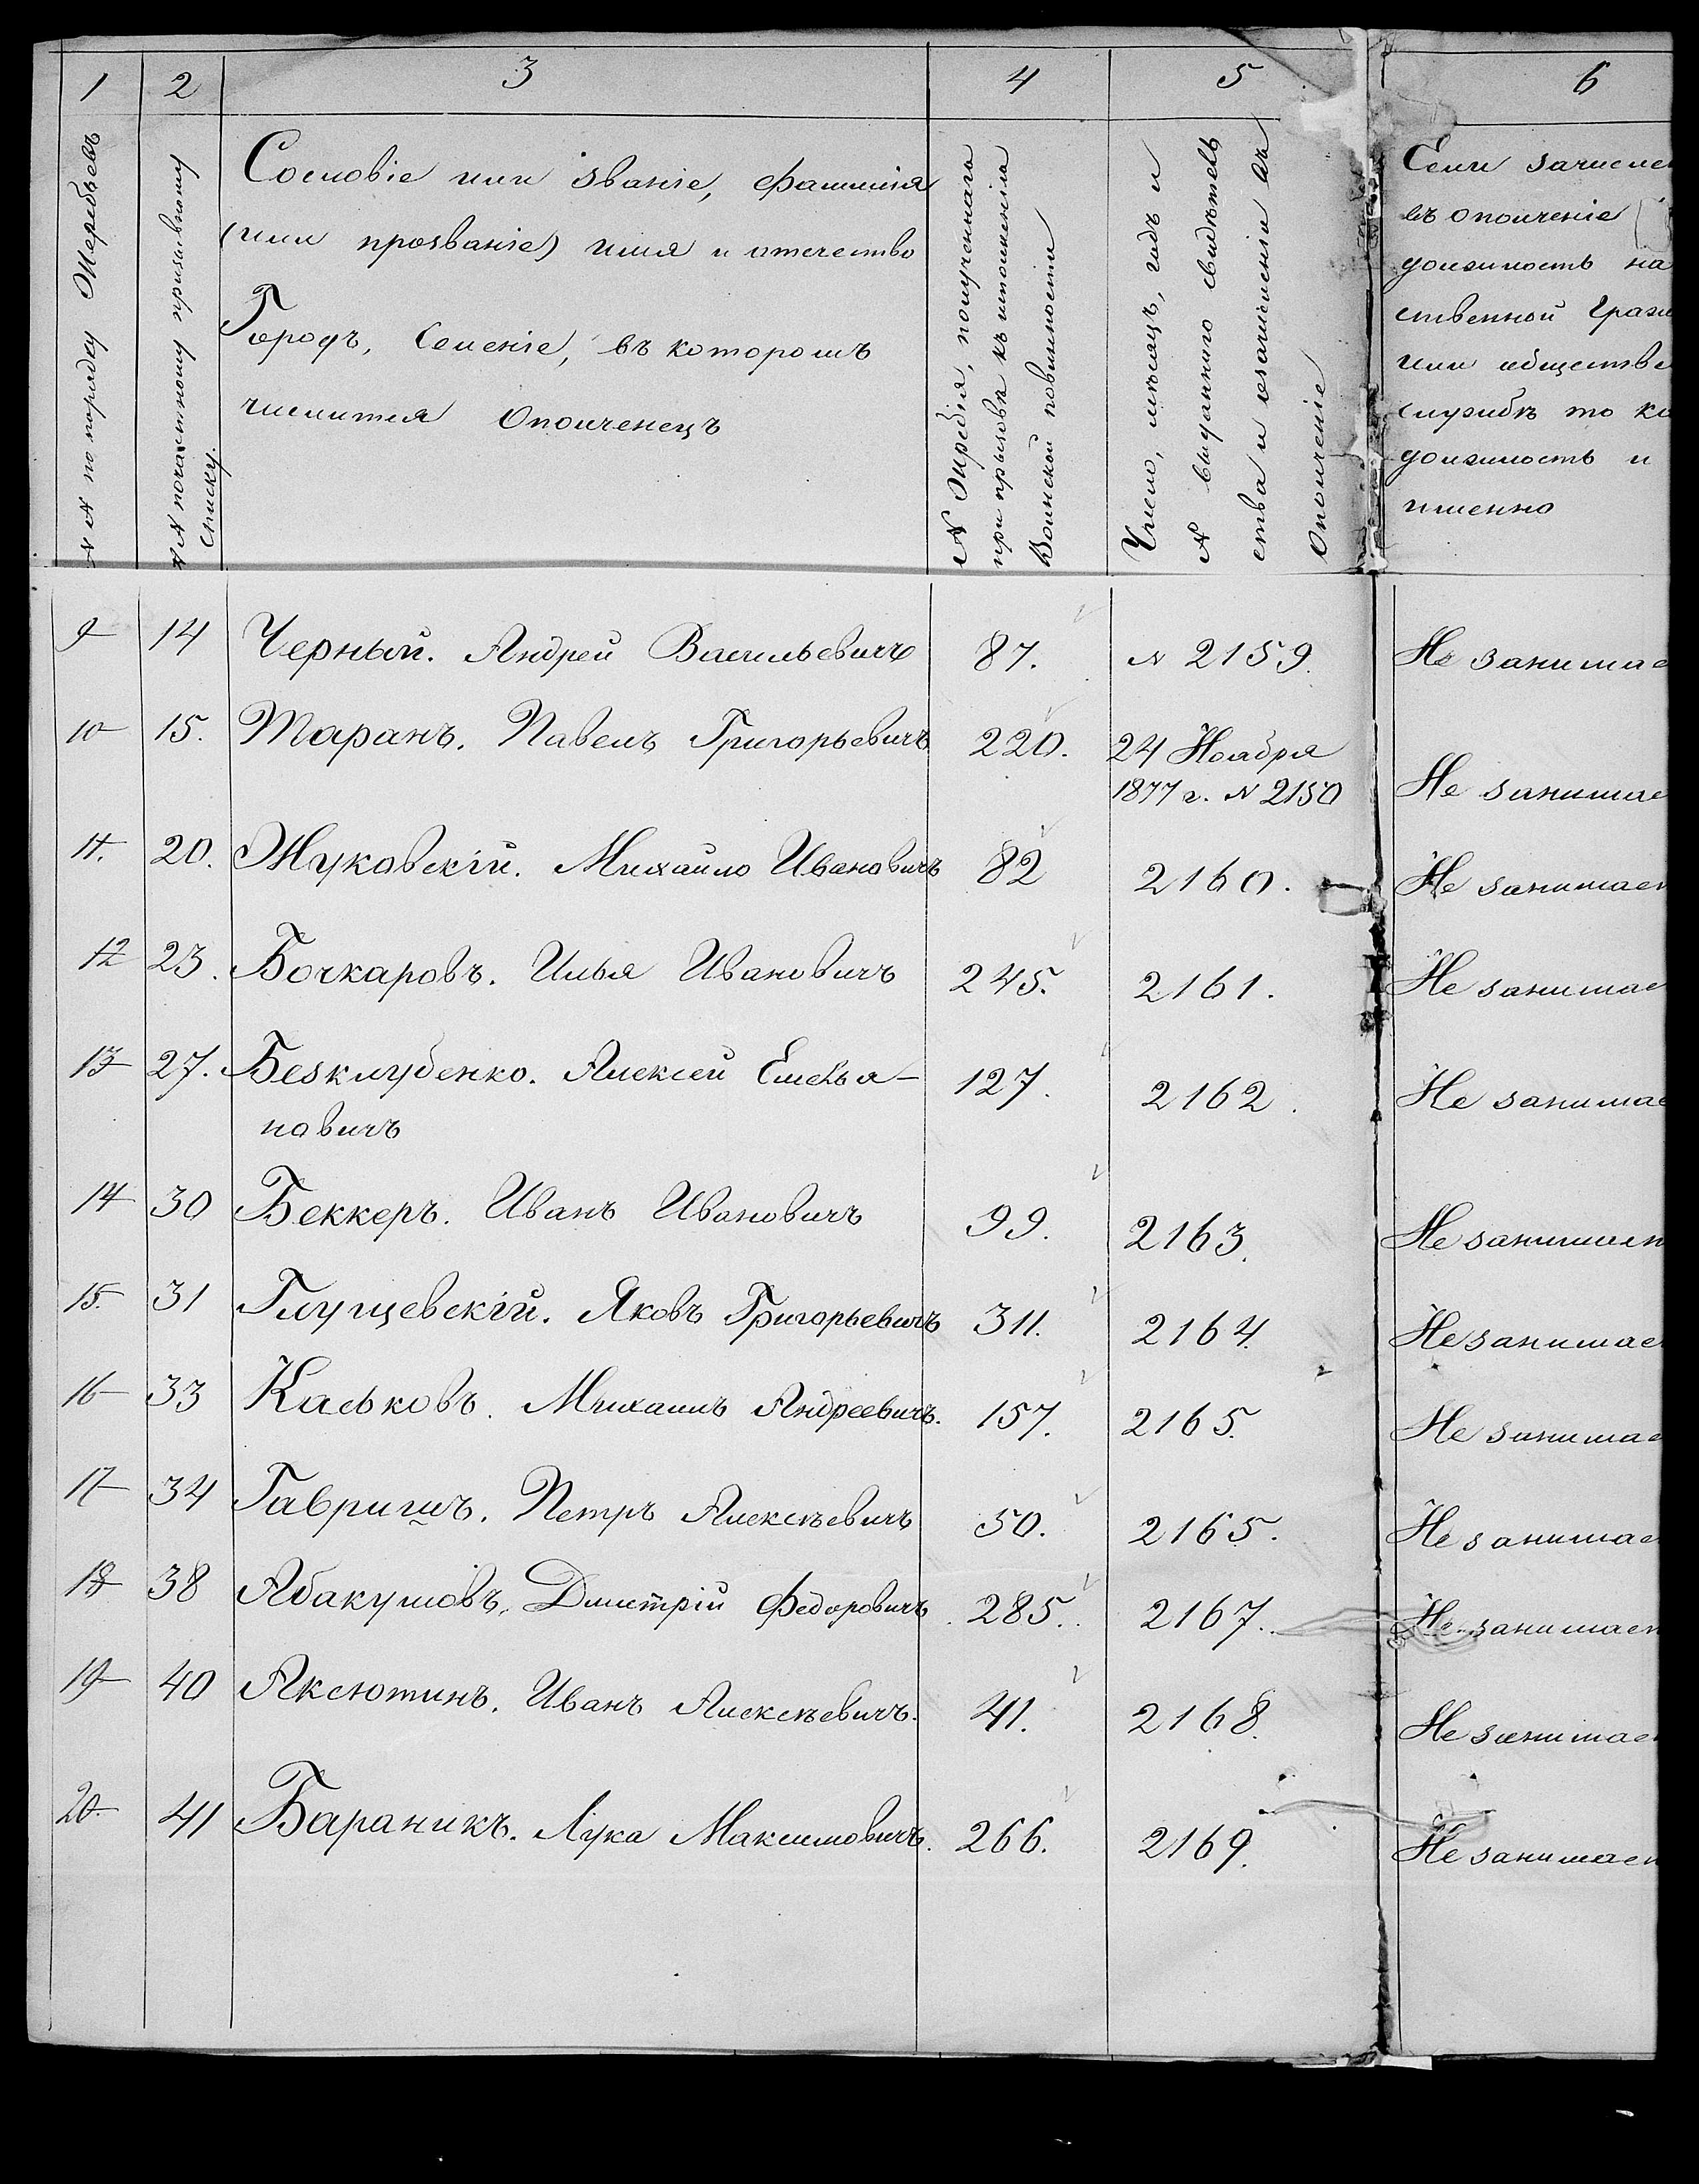 1 2 3 4 5 6
№№ по порядку Жеребьевъ
№№ по частному призывному
списку.
Сословіе или званіе, фамилія
(или прозваніе) имя и отчество
Городъ, Селеніе, въ которомъ
числится Ополченецъ
№ Жребія, полученнаго
при призывѣ къ исполненію
Воинской повинности
Число, мѣсяцъ, годъ и
№ выданнаго свидѣтель
ства и о зачисленіи въ
Ополченіе
Если зачислен
въ ополченіе
должность на
ственной Граж
или обществе
службѣ то ка
должность и
именно
9 14 Черный. Андрей Васильевичъ 87. № 2159. Не занимае
10 15. Таранъ. Павелъ Григорьевичъ 220. 24 Ноября
1877 г. № 2150 Не занимае
11. 20. Жуковскій. Михайло Ивановичъ 82 2160. Не занимает
12 23. Бочкаровъ. Илья Ивановичъ 245. 2161. Не занимае
13 27. Безклубенко. Алексей Емелья- 127. 2162. Не занимае
новичъ
14 30 Беккеръ. Иванъ Ивановичъ 99. 2163. Не занимает
15. 31 Глущевскій. Яковъ Григорьевичъ 311. 2164. Не занимает
16 33 Каськовъ. Михаилъ Андреевичъ. 157. 2165. Не занимае
17 34 Гавришъ. Петръ Алексѣевичъ 50. 2165. Не занимает
18 38 Абакумовъ, Дмитрій Федоровичъ 285. 2167. Не занимает
19 40 Аксютинъ. Иванъ Алексѣевичъ. 41. 2168. Не занимает
20. 41 Бараникъ. Лука Максимовичъ. 266. 2169. Не занимает